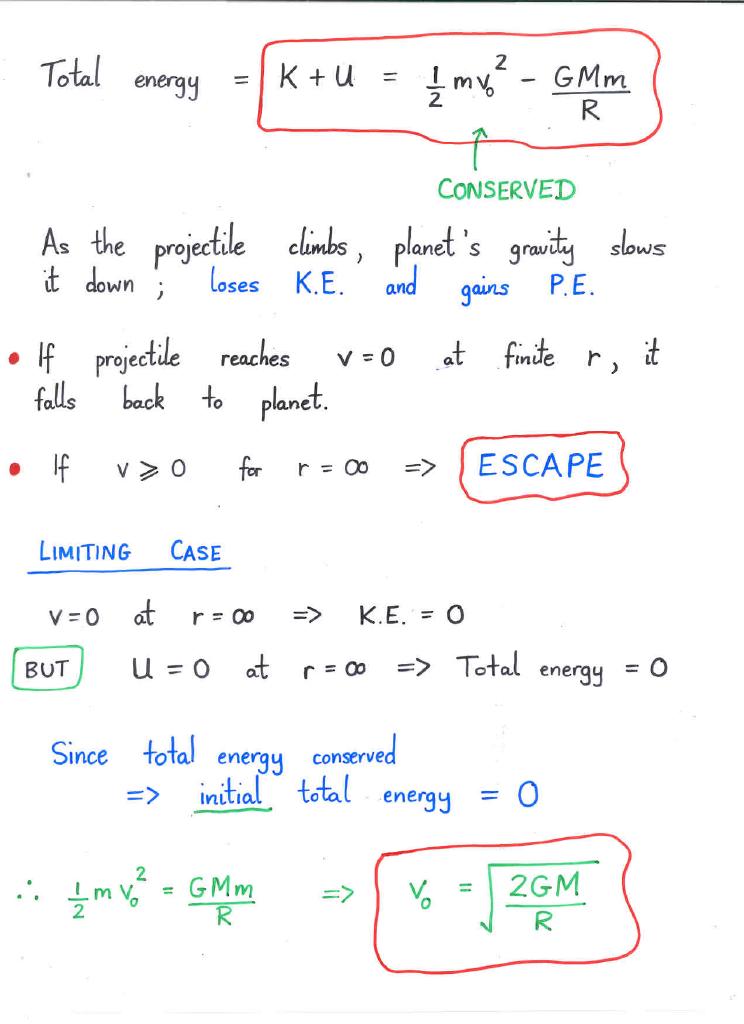 Total energy = K + U = ½ mv₀² − GMm/R
CONSERVED
As the projectile climbs, planet's gravity slows
it down ; loses K.E. and gains P.E.
• If projectile reaches v = 0 at finite r, it
falls back to planet.
• If v ⩾ 0 for r = ∞ => ESCAPE
LIMITING CASE
v = 0 at r = ∞ => K.E. = 0
BUT U = 0 at r = ∞ => Total energy = 0
Since total energy conserved
=> initial total energy = 0
∴ ½ m v₀² = GMm/R => v₀ = √(2GM/R)